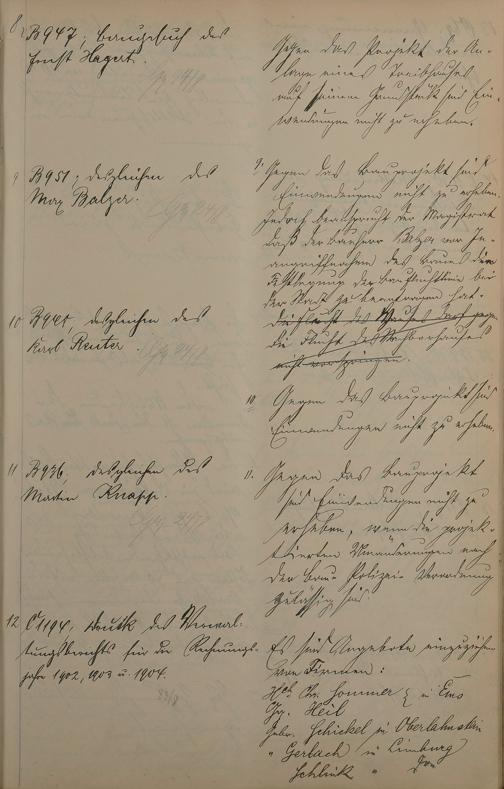 8, B947; Baugesuch des
Ernst Hagert.
Gegen das Projekt der An-
lage eines Treibhauses
auf seinem Grundstück sind Ein-
wendungen nicht zu erheben.
9 B951; desgleichen des
Max Balzer.
9. Gegen das Bauprojekt sind
Einwendungen nicht zu erheben.
Jedoch beansprucht der Magistrat
daß der Bauherr Balzer vor In-
angriffnahme des Baues die
Festlegung der Bauflucht­linie bei
der Stadt zu beantragen hat.
die Flucht des Hauses darf gegen
die Flucht des
nicht vorspringen.
10 desgleichen des
Karl Reuter.
10 Gegen das Bauprojekt sind
Einwendungen nicht zu erheben.
11 B936, desgleichen des
Martin Knapp.
11. Gegen das Bauprojekt
sind Einwendungen nicht zu
erheben, wenn die projek-
tierten Veränderungen nach
der Bau-Polizei-Verordnung
zulässig sind.
12 C1194, Druck des Verwal-
tungsberichts für die Rechnungs-
jahre 1902, 1903 u. 1904.
Es sind Angebote einzuziehen
von Firmen:
Hch. Chr. Sommer } in Ems
Gg. Heil
Gebr. Schickel in Oberlahnstein
" Gerlach in Limburg
Schlink "